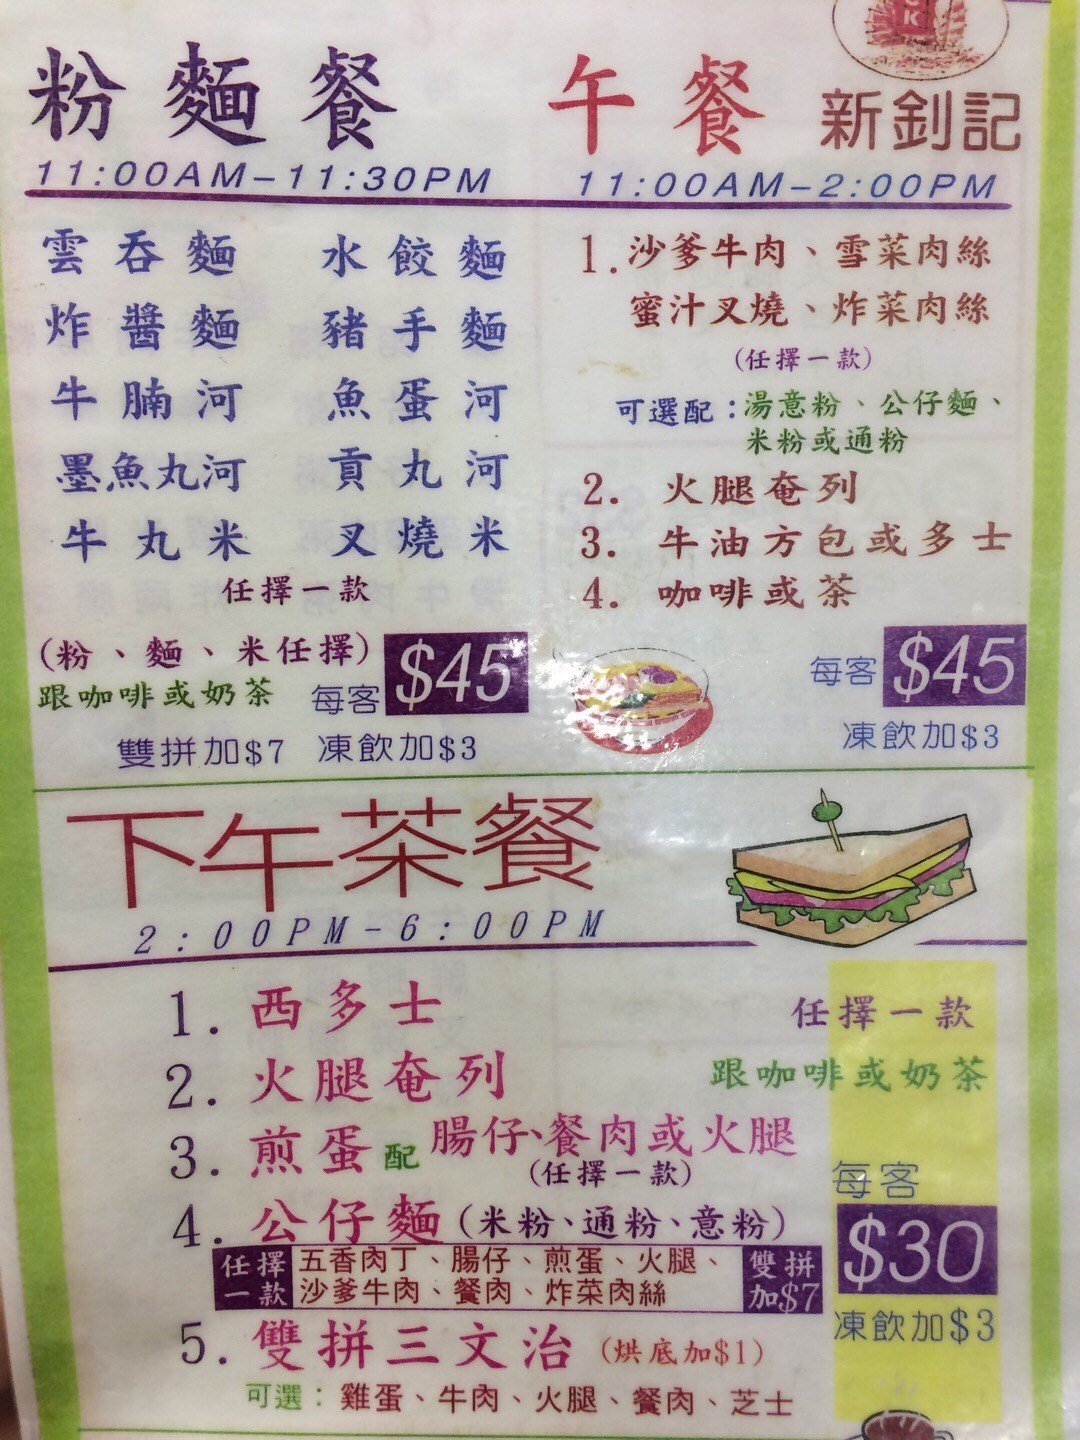 粉麵餐
11:00AM-11:30PM
雲吞麵 水餃麵
炸醬麵 豬手麵
牛腩河 魚蛋河
墨魚丸河 貢丸河
牛丸米 叉燒米
任擇一款
(粉、麵、米任擇)
跟咖啡或奶茶 每客 $45
雙拼加$7 凍飲加$3
午餐
新釗記
11:00AM-2:00PM
1.沙爹牛肉、雪菜肉絲
蜜汁叉燒、炸菜肉絲
(任擇一款)
可選配:湯意粉、公仔麵、
米粉或通粉
2. 火腿奄列
3. 牛油方包或多士
4. 咖啡或茶
每客 $45
凍飲加$3
下午茶餐
2:00PM-6:00PM
1. 西多士
2. 火腿奄列
3. 煎蛋配腸仔、餐肉或火腿
(任擇一款)
4. 公仔麵(米粉、通粉、意粉)
任擇一款 五香肉丁、腸仔、煎蛋、火腿、
沙爹牛肉、餐肉、炸菜肉絲 雙拼加$7
5. 雙拼三文治 (烘底加$1)
可選: 雞蛋、牛肉、火腿、餐肉、芝士
任擇一款
跟咖啡或奶茶
每客
$30
凍飲加$3